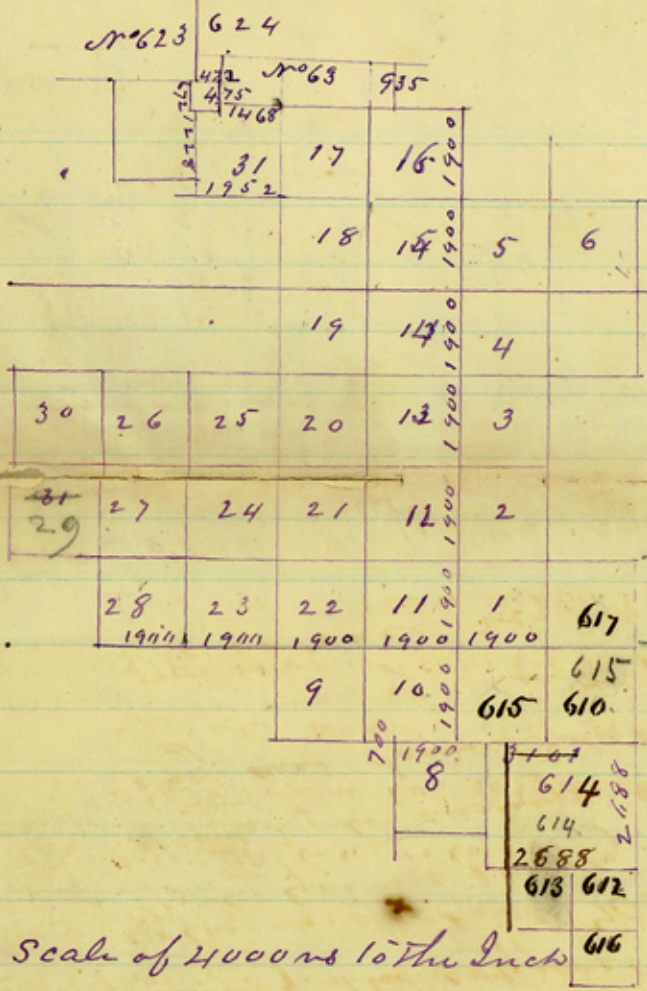 624
No 623
422 No 63 935
475
1468
31 17 16 1900
1952
18 15 1900 5 6
19 1900 4
30 26 25 20 13 1900 3
31
29 27 24 21 12 1900 2
28 23 22 11 1900 1 617
1900 1900 1900 1900 1900
615
9 10 1900 615 610
700 1900
8 614 2688
614
2688
613 612
616
Scale of 4000 vs to the Inch